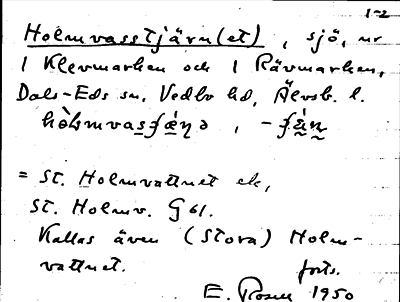 1-2
Holmvasstjärn(et), sjö, nr
1 Klevmarken och 1 Rävmarken,
Dals-Eds sn, Vedbo hd, Älvsb. l.
= St. Holmvattnet ek,
St. Holmv. G 61.
Kallas även (Stora) Holm-
vattnet. forts.
E. Rosell 1950